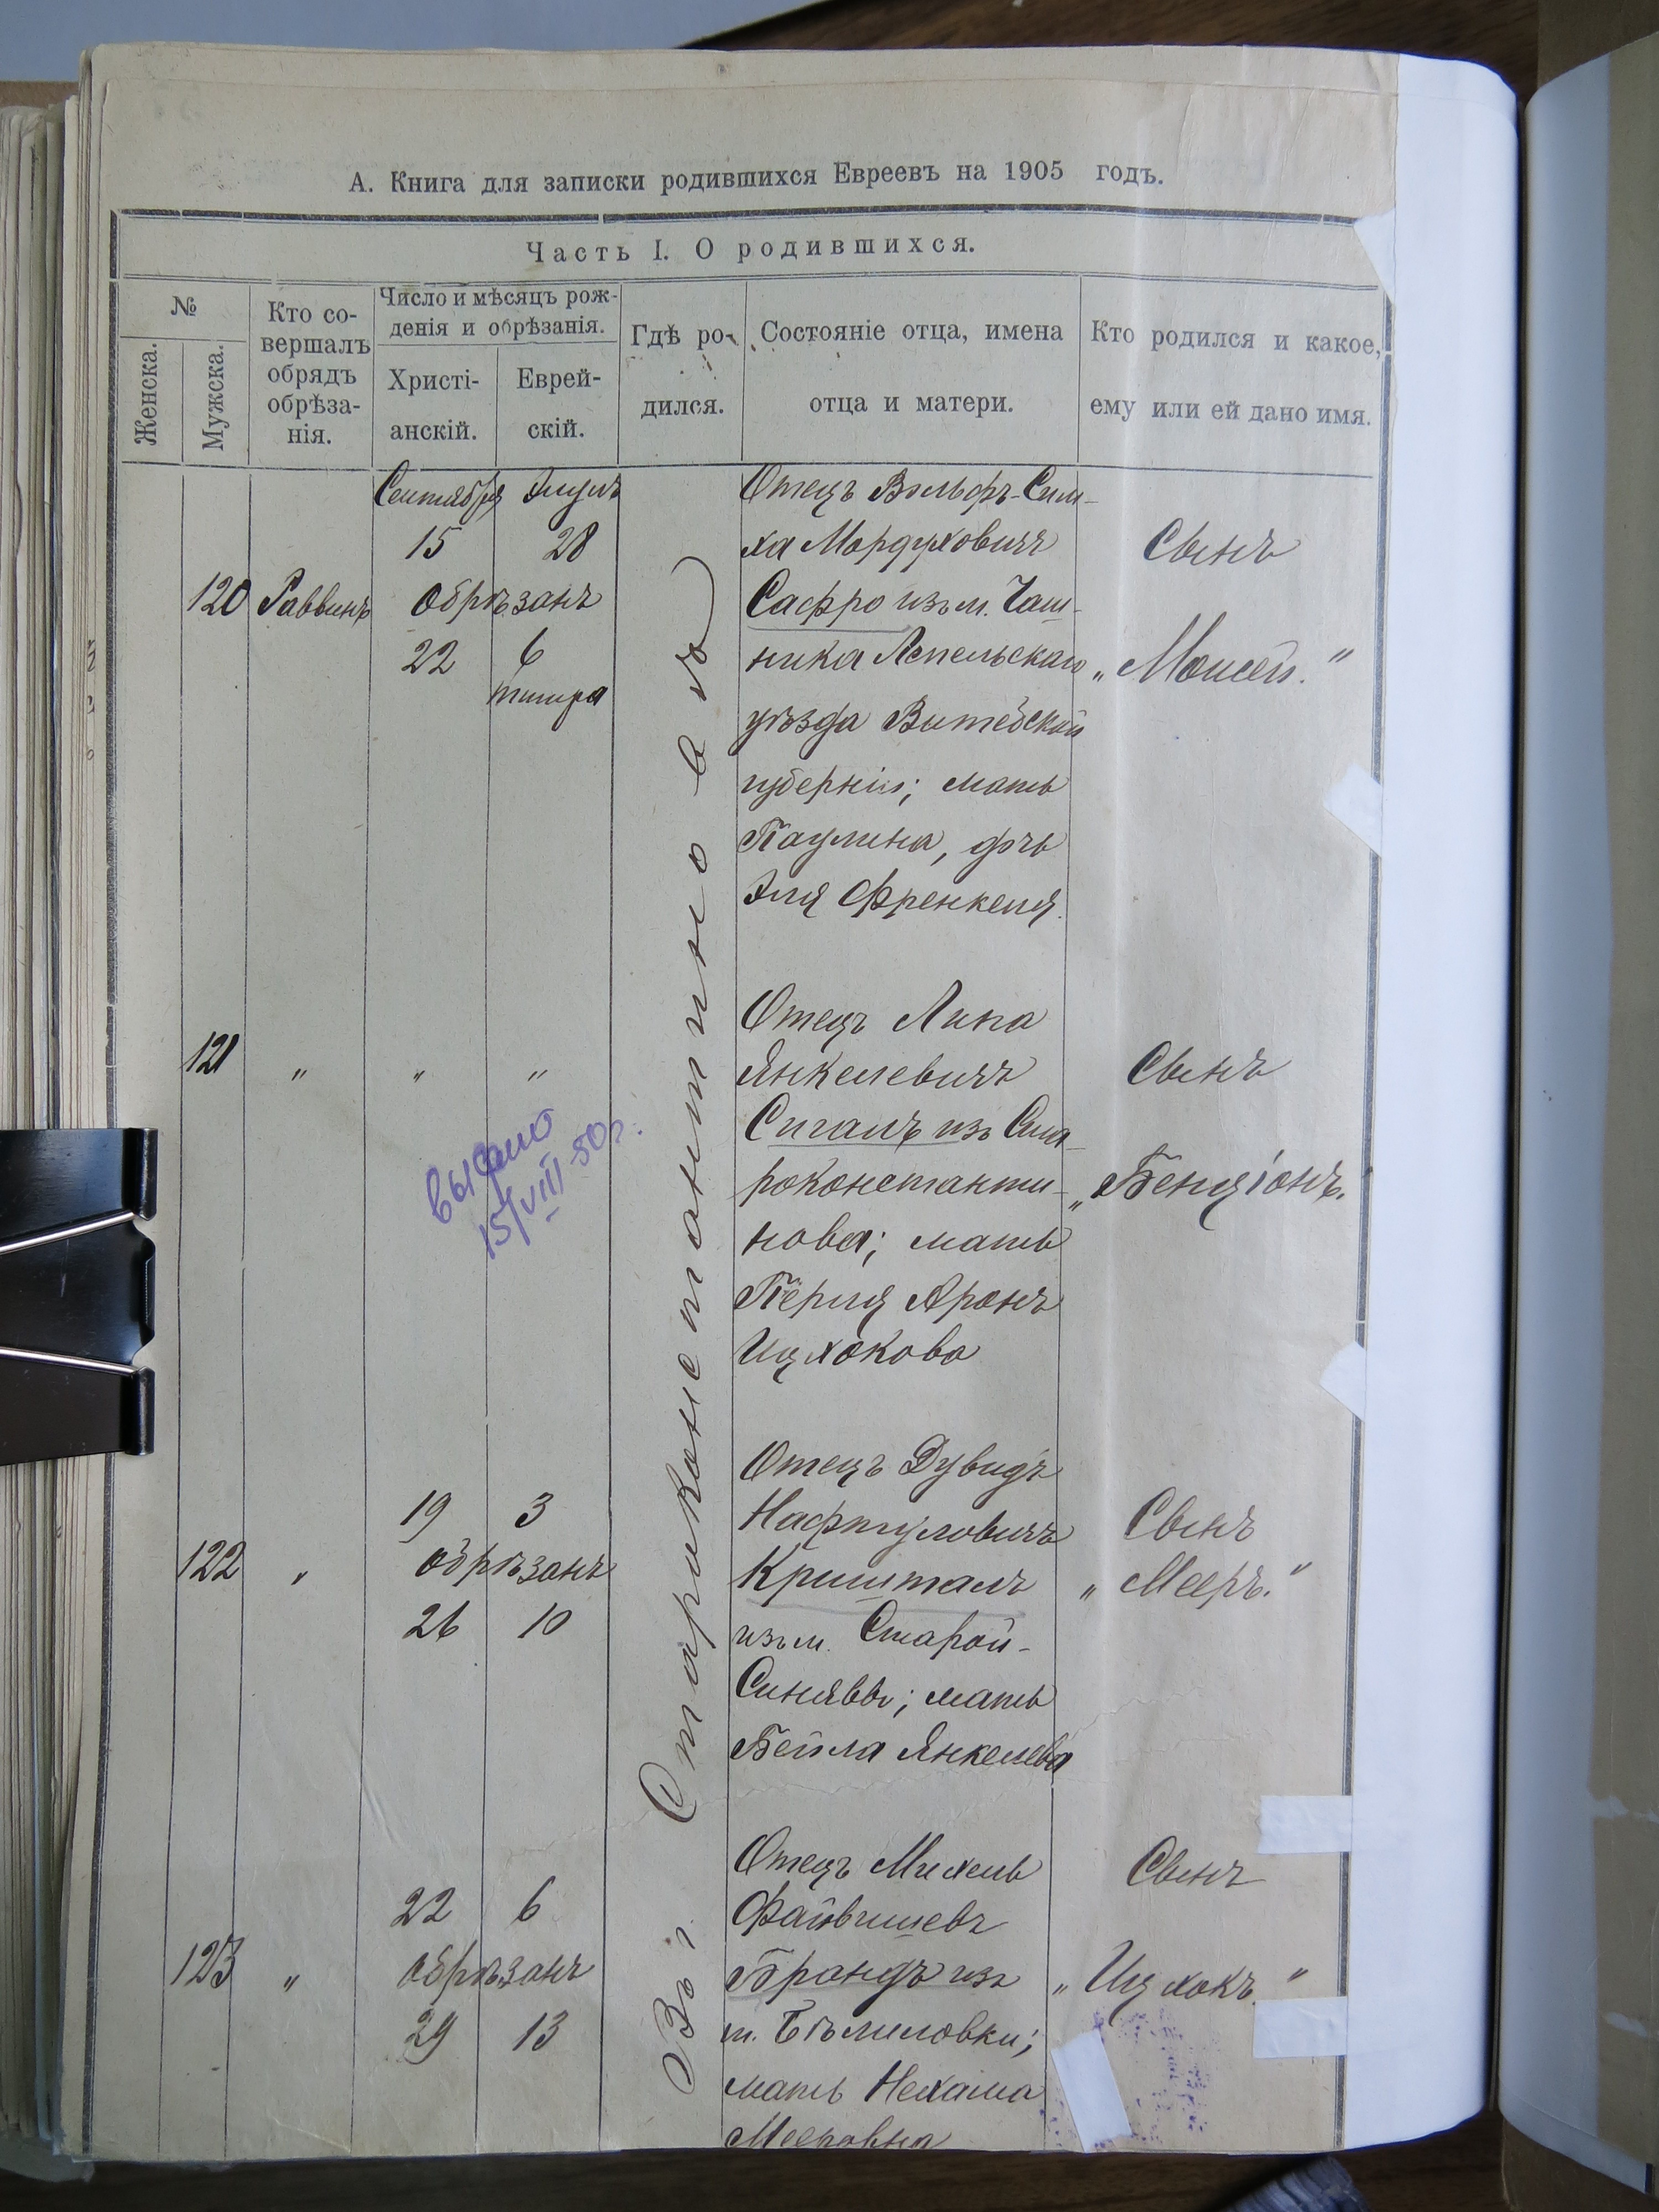 А. Книга для записки родившихся Евреевъ на 1905 годъ.
Часть I. О родившихся.
№
Женска.
Мужска.
Кто со-
вершалъ
обрядъ
обрѣза-
нія.
Число и мѣсяцъ рож-
денія и обрѣзанія.
Христі-
анскій.
Еврей-
скій.
Гдѣ ро-
дился.
Состояніе отца, имена
отца и матери.
Кто родился и какое,
ему или ей дано имя.
Въ г. Старокон��тантиновѣ
120 Раввинъ
Сентября Элулъ
15 28
Обрѣзанъ
22 6
тишра
Отецъ Вольфъ-Сим-
ха Мордуховичъ
Сафро изъ м. Чаш-
ника Лепельскаго
уѣзда Витебской
губерніи; мать
Паулина, дочь
Эля Френкеля.
Сынъ
„Моисей."
121 " " "
выдано
15/VIII 50 г.
Отецъ Липа
Янкелевичъ
Сигалъ изъ Ста-
роконстанти-
нова; мать
Перля Аронъ
Ицхокова
Сынъ
„Бенціонъ.
122 "
19 3
обрѣзанъ
26 10
Отецъ Дувидъ
Нафтуловичъ
Кришталъ
изъ м. Старой-
Синявы; мать
Бейла Янкелева
Сынъ
„Мееръ."
123 "
22 6
обрѣзанъ
29 13
Отецъ Михель
Файвишевъ
Брандъ изъ
м. Бѣлиловки;
мать Нехама
Мееровна
Сынъ
„Ицхокъ."